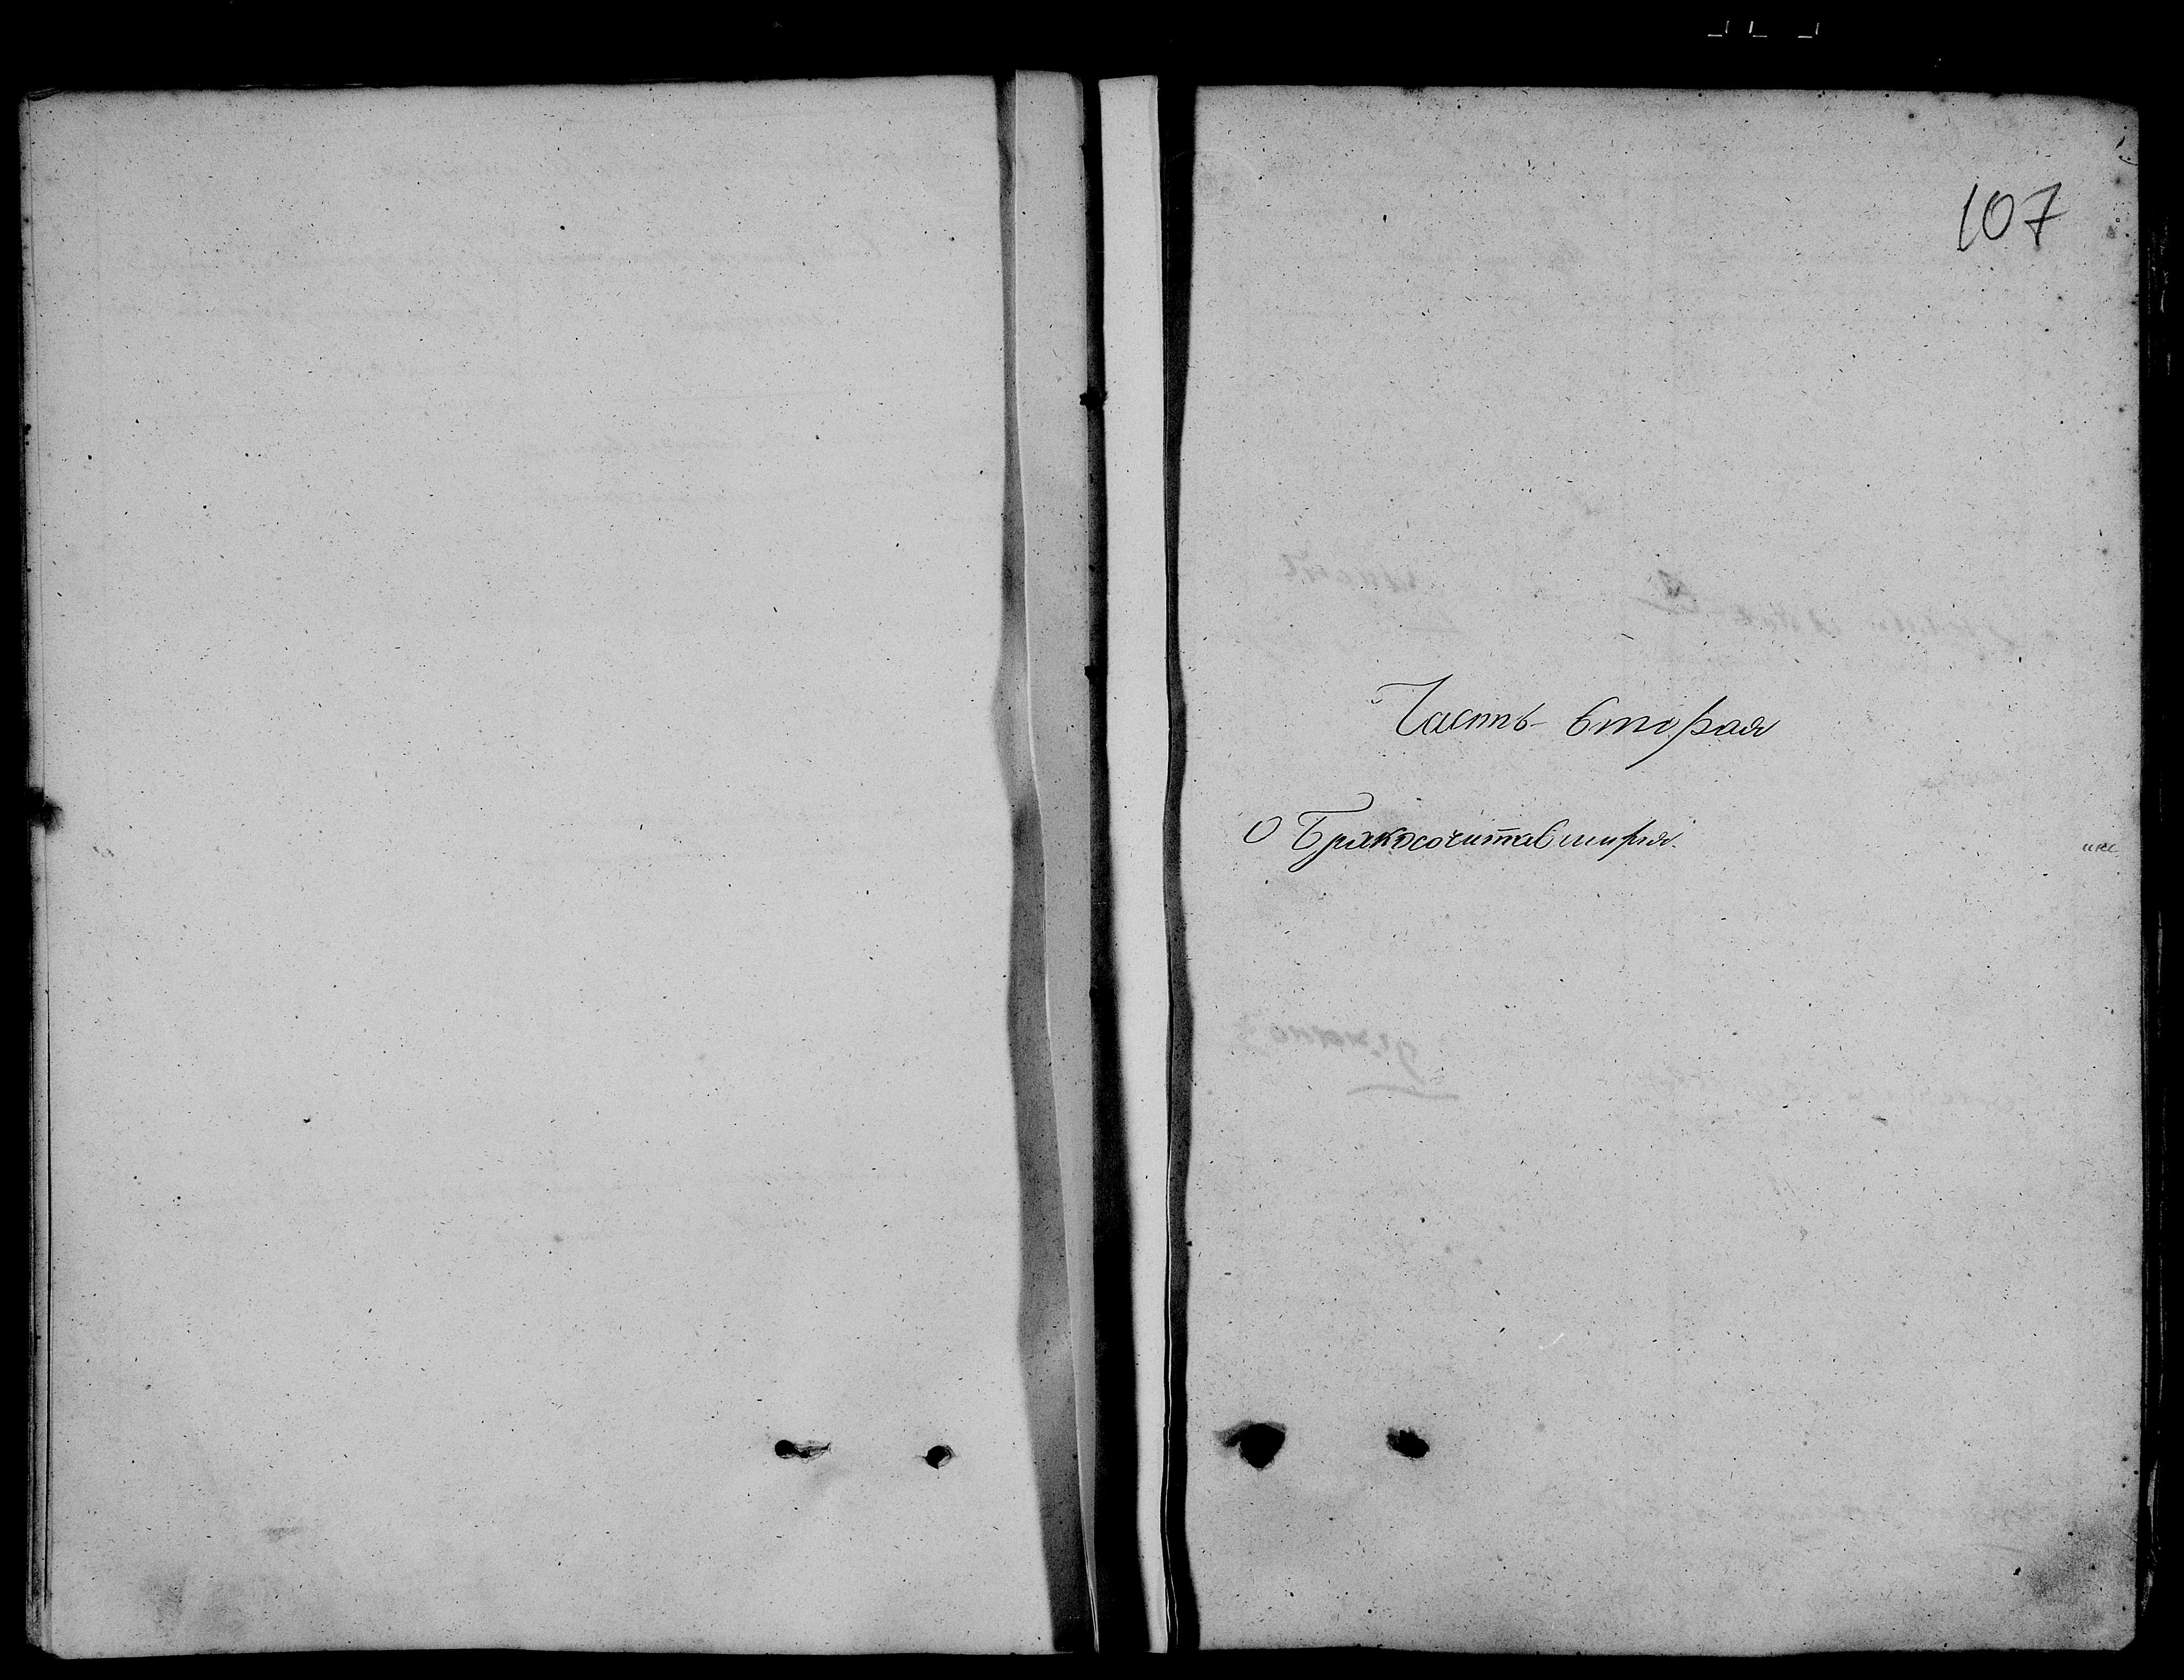 107
Часть вторая
О Бракосочитавшихся.